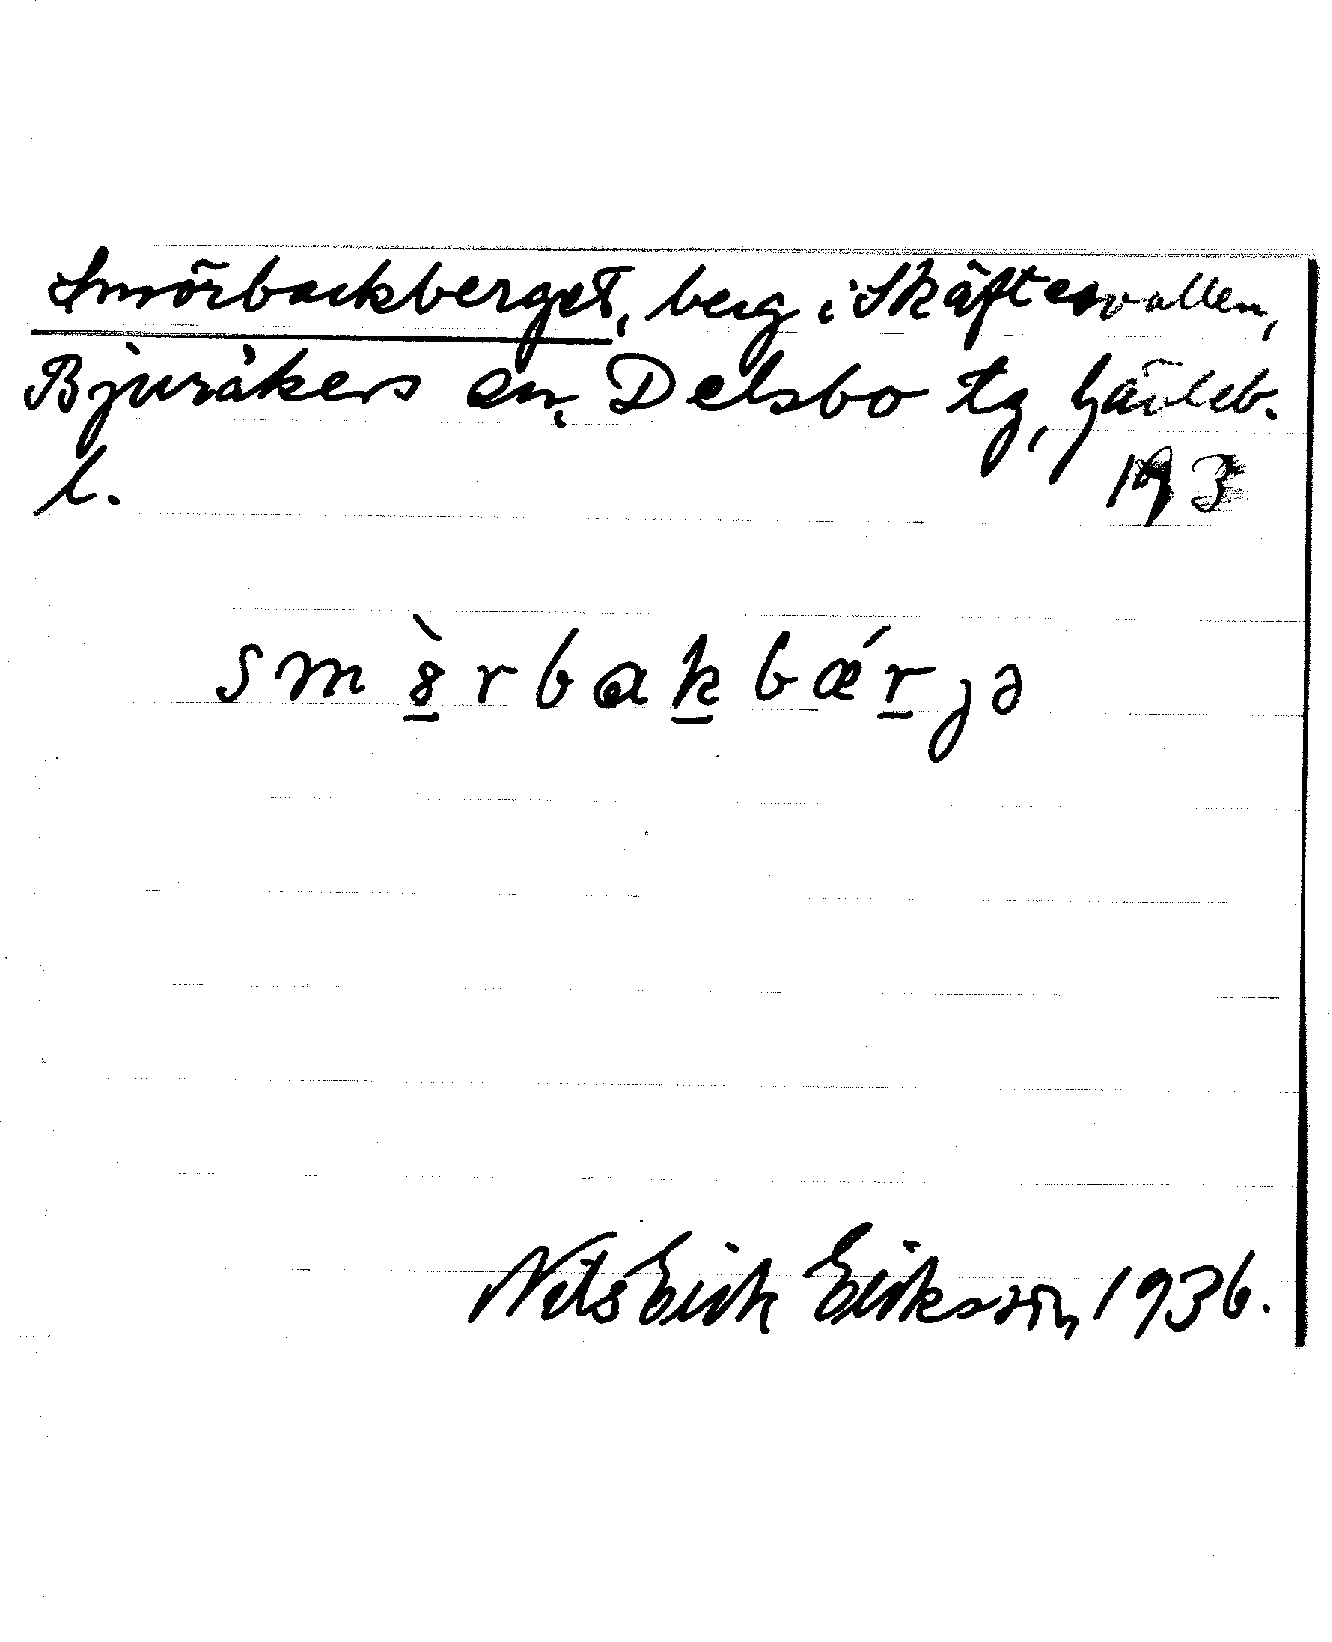 Smörbackberget, berg i Skäftesvallen,
Bjuråkers sn, Delsbo tg, Gävleb.
l. 193
sm8̠̀rbak̠bǽr̠jə
Nils Erik Eriksson, 1936.